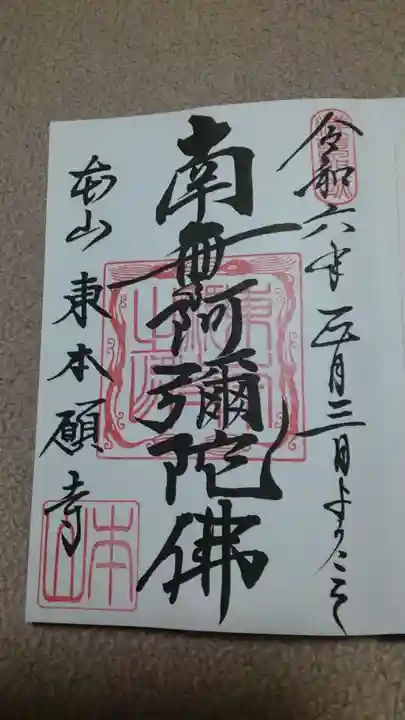 令和六年正月三日ようこそ
南無阿彌陀佛
本山 東本願寺
本山